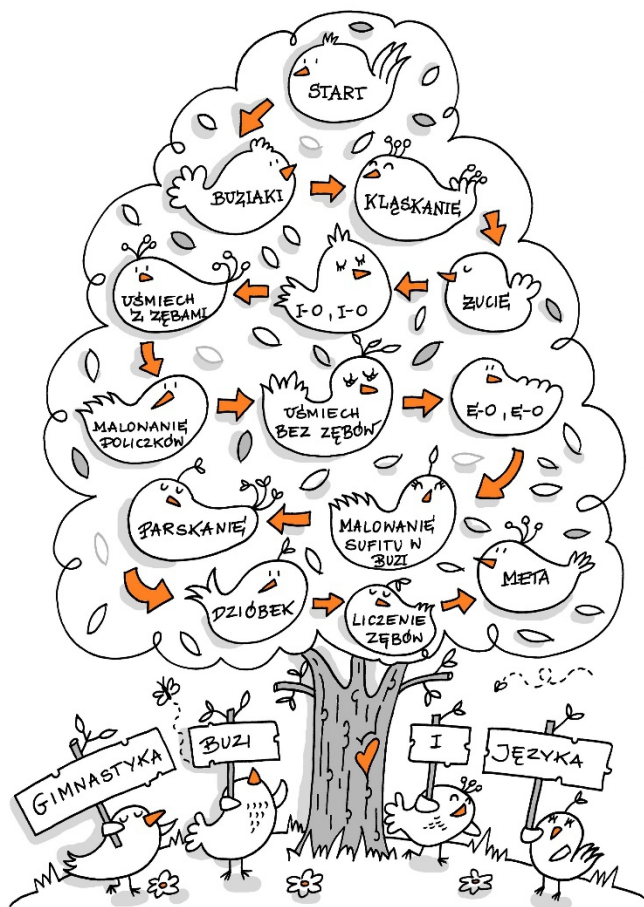 START
BUZIAKI
KLĄSKANIĘ
ŻUCIĘ
I-O, I-O
UŚMIECH
Z ZĘBAMI
MALONANIĘ
POLICZKÓW
UŚMIECH
BEZ ZĘBÓW
Ę-O, Ę-O
MALOWANIĘ
SUFITU W
BUZI
PARSKANIĘ
DZIÓBEK
LICZENIE
ZĘBÓW
META
GIMNASTYKA
BUZI
I
JĘZYKA